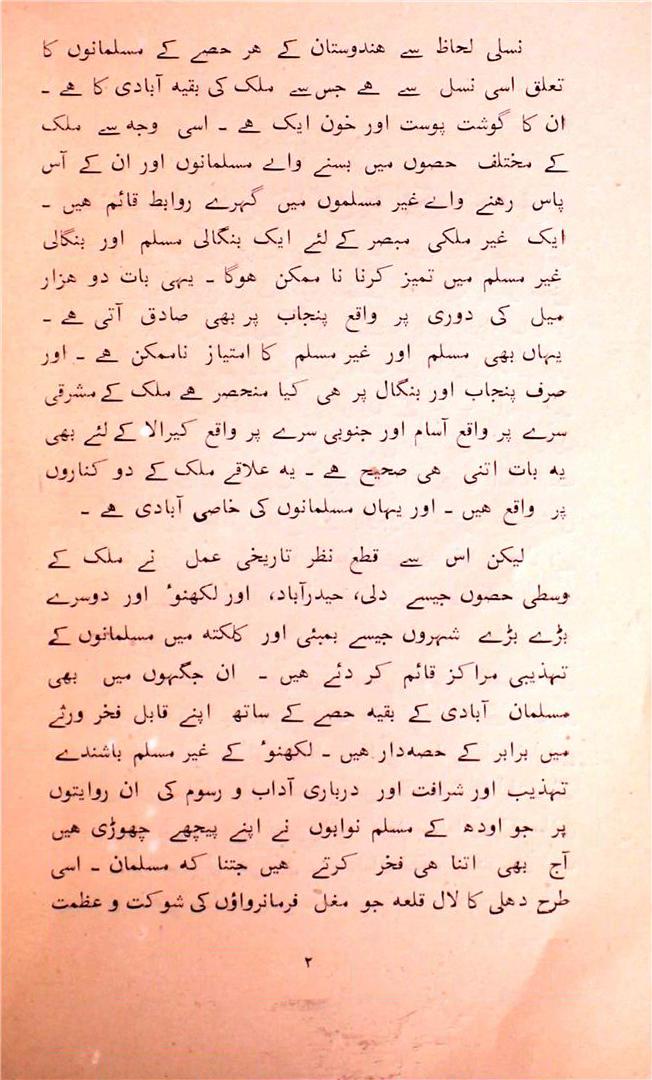 نسلی لحاظ سے ھندوستان کے ھر حصے کے مسلمانوں کا
تعلق اسی نسل سے ھے جس سے ملک کی بقیه آبادی کا ھے ۔
ان کا گوشت پوست اور خون ایک ھے ۔ اسی وجه سے ملک
کے مختلف حصوں میں بسنے والے مسلمانوں اور ان کے آس
پاس رھنے والے غیر مسلموں میں گہرے روابط قائم ھیں ۔
ایک غیر ملکی مبصر کے لئے ایک بنگالی مسلم اور بنگالی
غیر مسلم میں تمیز کرنا نا ممکن ھوگا ۔ یہی بات دو ھزار
میل کی دوری پر واقع پنجاب پر بھی صادق آتی ھے ۔
یہاں بھی مسلم اور غیر مسلم کا امتیاز ناممکن ھے ۔ اور
صرف پنجاب اور بنگال پر ھی کیا منحصر ھے ملک کے مشرقی
سرے پر واقع آسام اور جنوبی سرے پر واقع کیرالا کے لئے بھی
یه بات اتنی ھی صحیح ھے ۔ یه علاقے ملک کے دو کناروں
پر واقع ھیں ۔ اور یہاں مسلمانوں کی خاصی آبادی ھے ۔
لیکن اس سے قطع نظر تاریخی عمل نے ملک کے
وسطی حصوں جیسے دلی، حیدرآباد، اور لکھنوٴ اور دوسرے
بڑے بڑے شہروں جیسے بمبئی اور کلکته میں مسلمانوں کے
تہذیبی مراکز قائم کر دئے ھیں ۔ ان جگہوں میں بھی
مسلمان آبادی کے بقیه حصے کے ساتھ اپنے قابل فخر ورثے
میں برابر کے حصه‌دار ھیں ۔ لکھنوٴ کے غیر مسلم باشندے
تہذیب اور شرافت اور درباری آداب و رسوم کی ان روایتوں
پر جو اودھ کے مسلم نوابوں نے اپنے پیچھے چھوڑی ھیں
آج بھی اتنا ھی فخر کرتے ھیں جتنا که مسلمان ۔ اسی
طرح دھلی کا لال قلعه جو مغل فرمانرواؤں کی شوکت و عظمت
۲